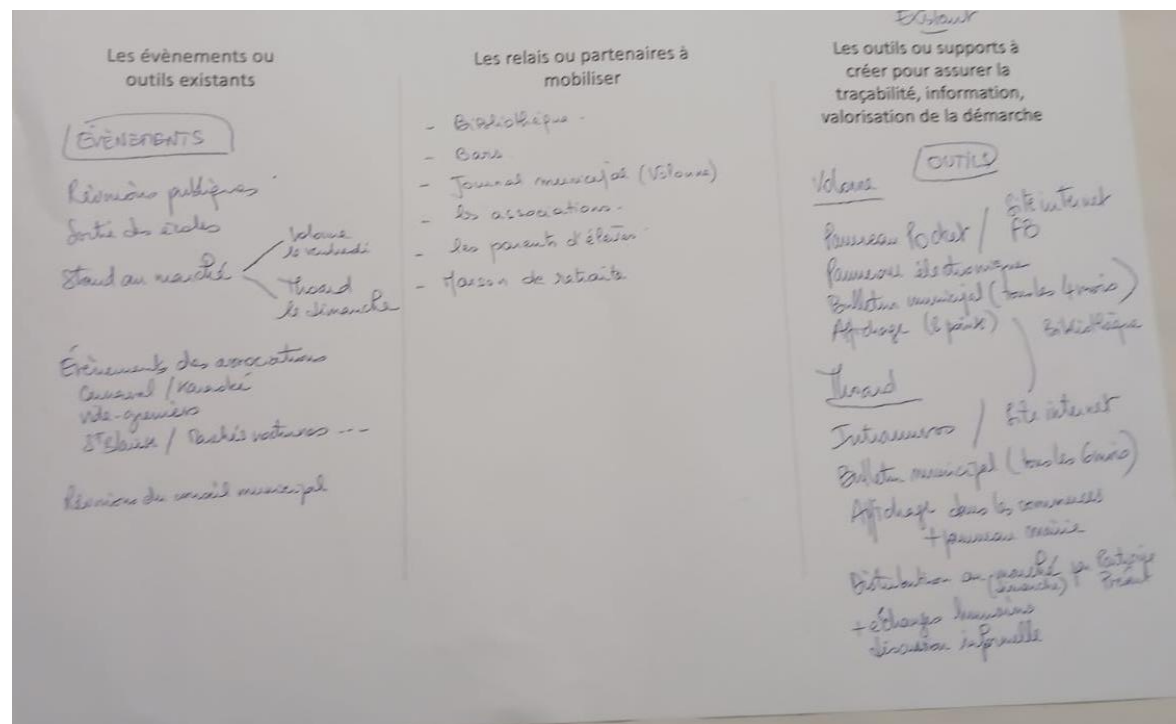 Les évènements ou
outils existants
ÉVÈNEMENTS
Réunions publiques
Sortie des écoles
Stand au marché
Volonne
le vendredi
Thoard
le dimanche
Évènements des associations
Carnaval / Karaoké
vide-greniers
St Blaise / Marchés nocturnes ---
Réunions du conseil municipal
Les relais ou partenaires à
mobiliser
- Bibliothèque -
- Bars
- Journal municipal (Volonne)
- les associations -
- les parents d'élèves -
- Maison de retraite
Existant
Les outils ou supports à
créer pour assurer la
traçabilité, information,
valorisation de la démarche
OUTILS
Volonne
Panneau Pocket / Site internet
FB
Panneau électronique
Bulletin municipal (tous les 4 mois)
Affichage (8 points)
Bibliothèque
Thoard
Intramuros / Site internet
Bulletin municipal (tous les 6 mois)
Affichage dans les commerces
+ panneau mairie
Distribution au marché par
(dimanche)
+ échanges humains
discussion informelle